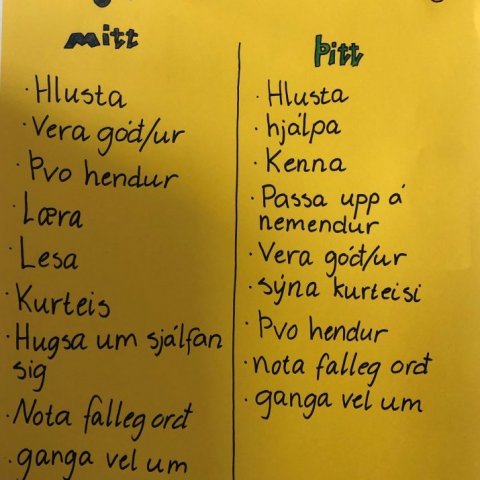 mitt
· Hlusta
· Vera góð/ur
· Þvo hendur
· Læra
· Lesa
· Kurteis
· Hugsa um sjálfan
sig
· Nota falleg orð
· ganga vel um
Þitt
· Hlusta
· hjálpa
· Kenna
· Passa upp á
nemendur
· Vera góð/ur
· sýna kurteisi
· Þvo hendur
· nota falleg orð
· ganga vel um